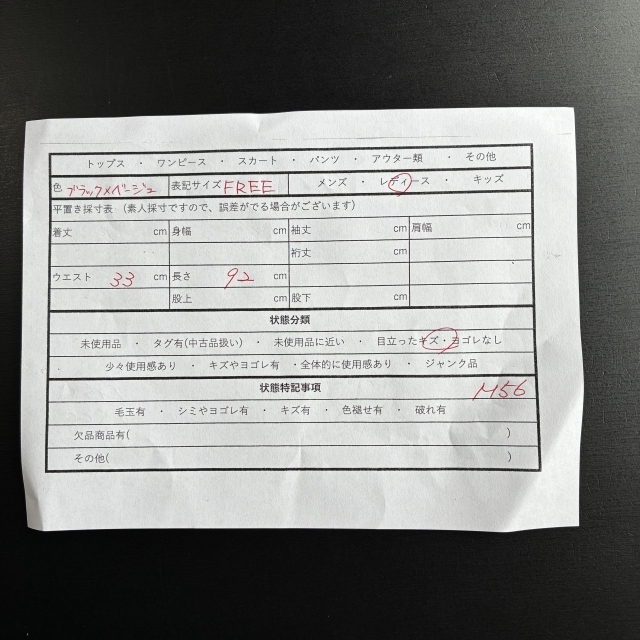 トップス ・ ワンピース ・ スカート ・ パンツ ・ アウター類 ・ その他
色 ブラック×ベージュ 表記サイズ FREE メンズ ・ レディース ・ キッズ
平置き採寸表 (素人採寸ですので、誤差がでる場合がございます)
着丈 cm 身幅 cm 袖丈 cm 肩幅 cm
裄丈 cm
ウエスト 33 cm 長さ 92 cm
股上 cm 股下 cm
状態分類
未使用品 ・ タグ有(中古品扱い) ・ 未使用品に近い ・ 目立ったキズ・ヨゴレなし
・ 少々使用感あり ・ キズやヨゴレ有 ・全体的に使用感あり ・ ジャンク品
状態特記事項
M56
毛玉有 ・ シミやヨゴレ有 ・ キズ有 ・ 色褪せ有 ・ 破れ有
欠品商品有( )
その他( )